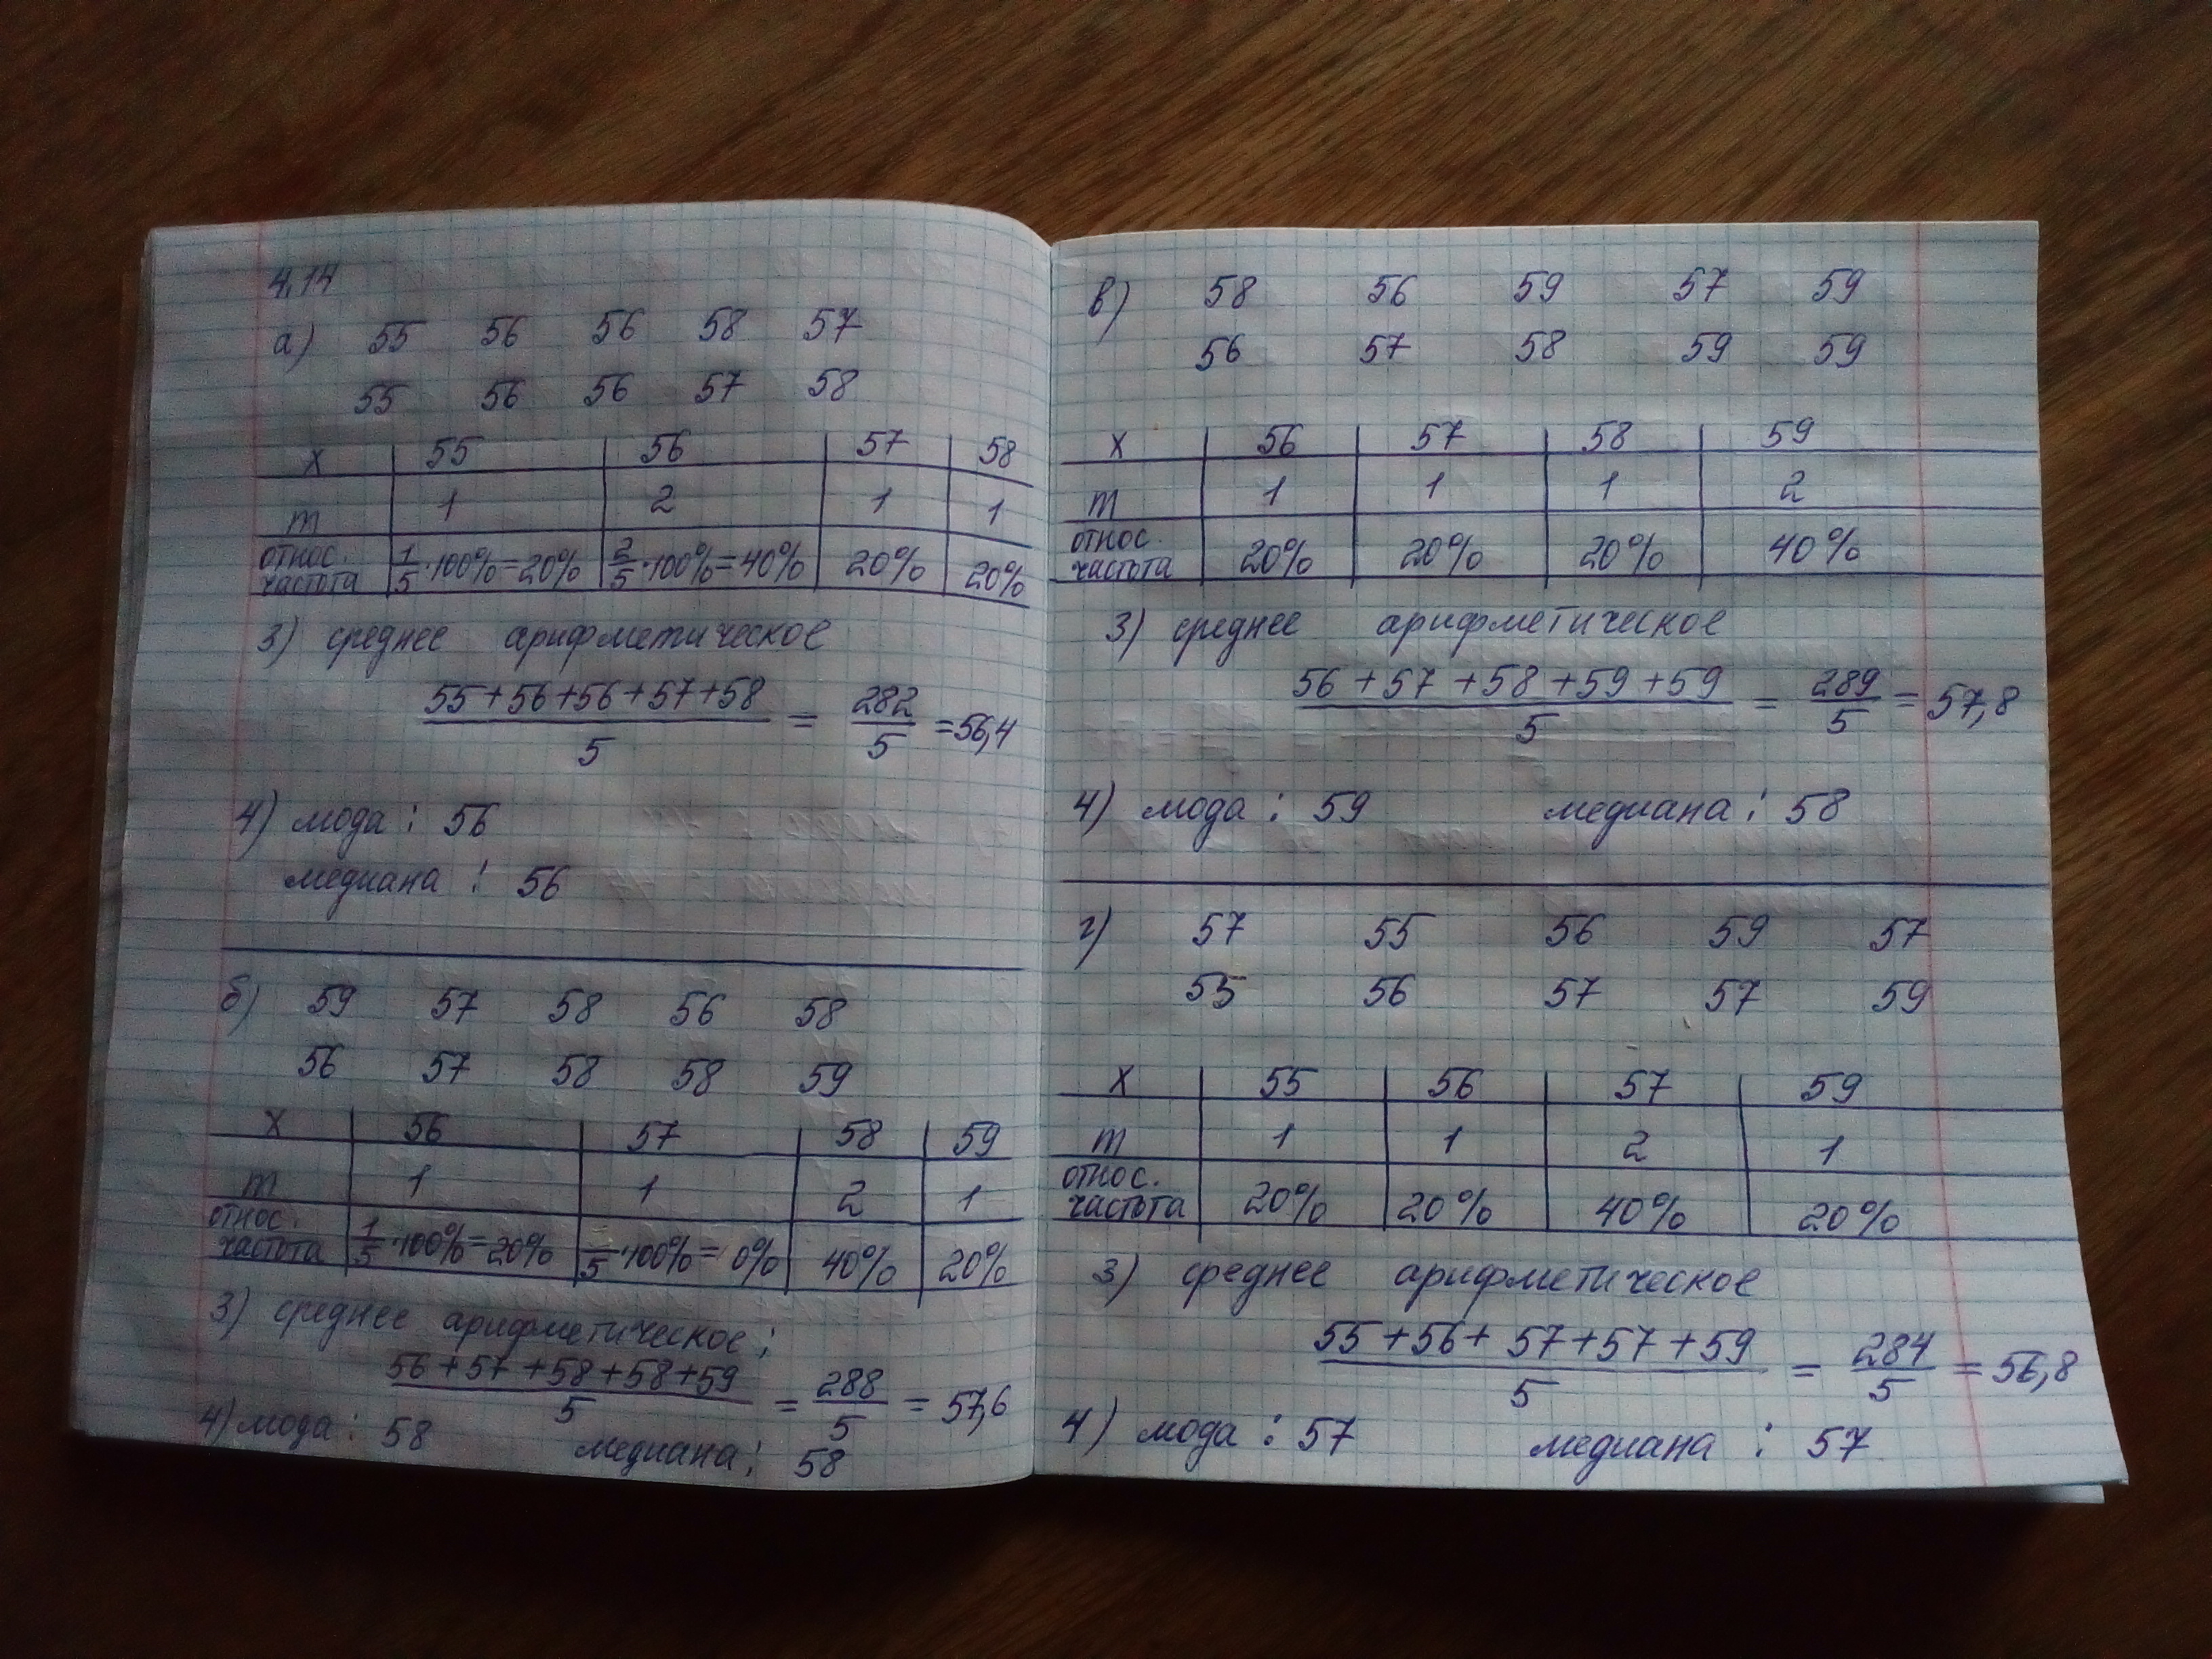 4.14
а) 55 56 56 58 57
55 56 56 57 58
x 55 56 57 58
m 1 2 1 1
относ. частота 1/5·100%=20% 2/5·100%=40% 20% 20%
3) среднее арифметическое
(55+56+56+57+58)/5 = 282/5 =56,4
4) мода : 56
медиана : 56
б) 59 57 58 56 58
56 57 58 58 59
x 56 57 58 59
m 1 1 2 1
относ. частота 1/5·100%=20% /5·100%= 0% 40% 20%
3) среднее арифметическое :
(56+57+58+58+59)/5 = 288/5 = 57,6
4) мода : 58 медиана : 58
в) 58 56 59 57 59
56 57 58 59 59
x 56 57 58 59
m 1 1 1 2
относ. частота 20% 20% 20% 40%
3) среднее арифметическое
(56+57+58+59+59)/5 = 289/5 = 57,8
4) мода : 59 медиана : 58
г) 57 55 56 59 57
55 56 57 57 59
x 55 56 57 59
m 1 1 2 1
относ. частота 20% 20% 40% 20%
3) среднее арифметическое
(55+56+57+57+59)/5 = 284/5 = 56,8
4) мода : 57 медиана : 57